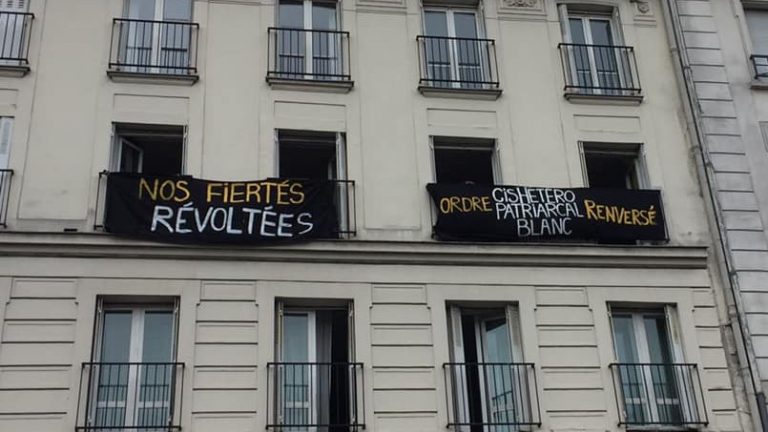 NOS FIERTÉS
RÉVOLTÉES
ORDRE CISHÉTÉRO PATRIARCAL BLANC RENVERSÉ